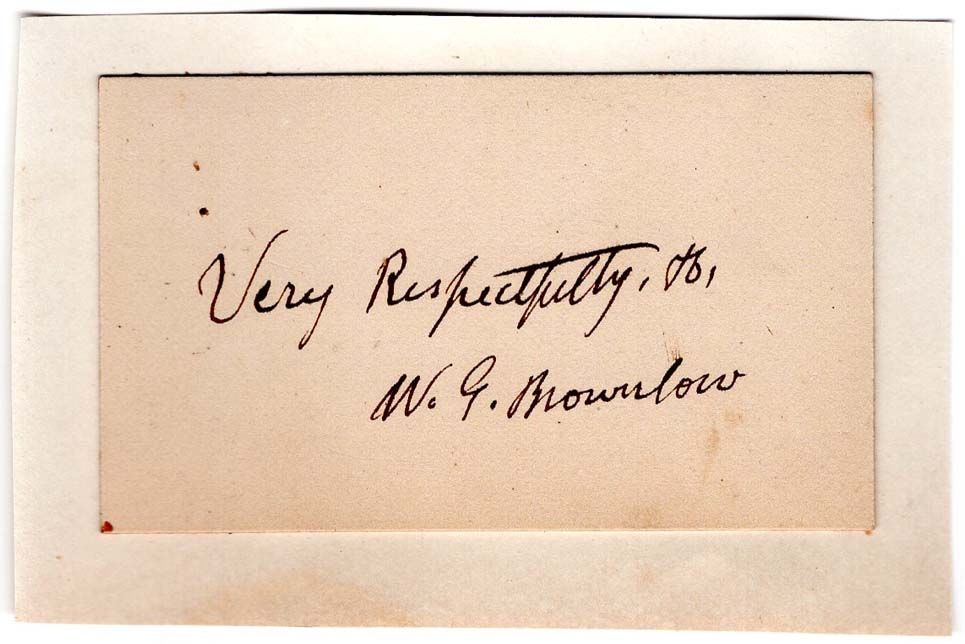 Very Respectfully, &,
W. G. Brownlow